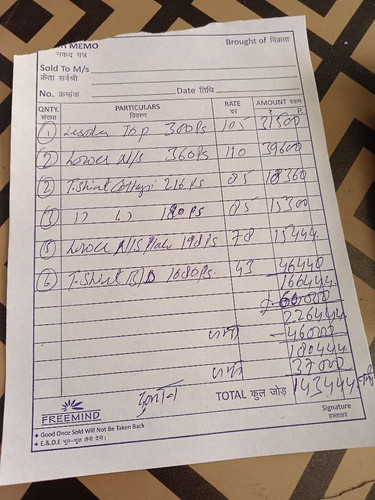 MEMO
नकद पत्र
Brought of विक्रता
Sold To M/s
क्रेता सर्वश्री
No. क्रमांक Date तिथि
QNTY. PARTICULARS RATE AMOUNT रकम
संख्या विवरण दर ₹ P.
1 Top 300Ps 105 31500
2 Lower N/S 360Ps 110 39600
2 T.Shirt 216 Ps 85 18360
3 " " 180 Ps 85 15300
5 Lower N/S 198Ps 78 15444
6 T-Shirt B/D 1080Ps. 43 46440
166644
60000
226444
46000
180444
37000
TOTAL कुल जोड़ 143444
FREEMIND
Signature
हस्ताक्षर
Good Once Sold Will Not Be Taken Back
E.&O.E भूल-चूक लेनी देनी।